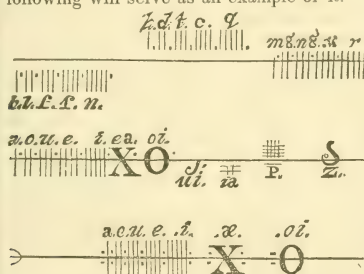 following will serve as an example of it.
h.d.t.c. q
mg.ng.z r
b.l.f.s.n.
a.o.u.e. i. ea. oi.
X O
ui. ia P. Z.
a.o.u.e. .i. .æ. .oi.
X O